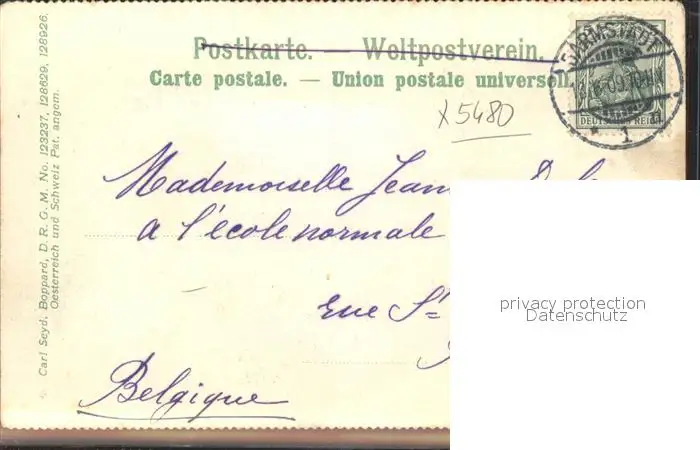 Postkarte. — Weltpostverein.
Carte postale. — Union postale universell
DARMSTADT
1
DEUTSCHES REICH
x5480
Mademoiselle
a l'école normale
rue St
Belgique
Carl Seyd. Boppard, D. R. G. M. No. 123237, 128629, 128926.
Oesterreich und Schweiz Pat. angem.
privacy protection
Datenschutz